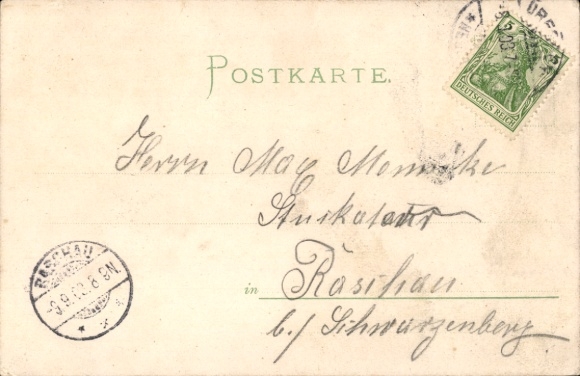 POSTKARTE.
5 5
DEUTSCHES REICH
Herrn Max
Stuckateur
in Raschau
b./ Schwarzenberg
RASCHAU
9.9.03.8-9N